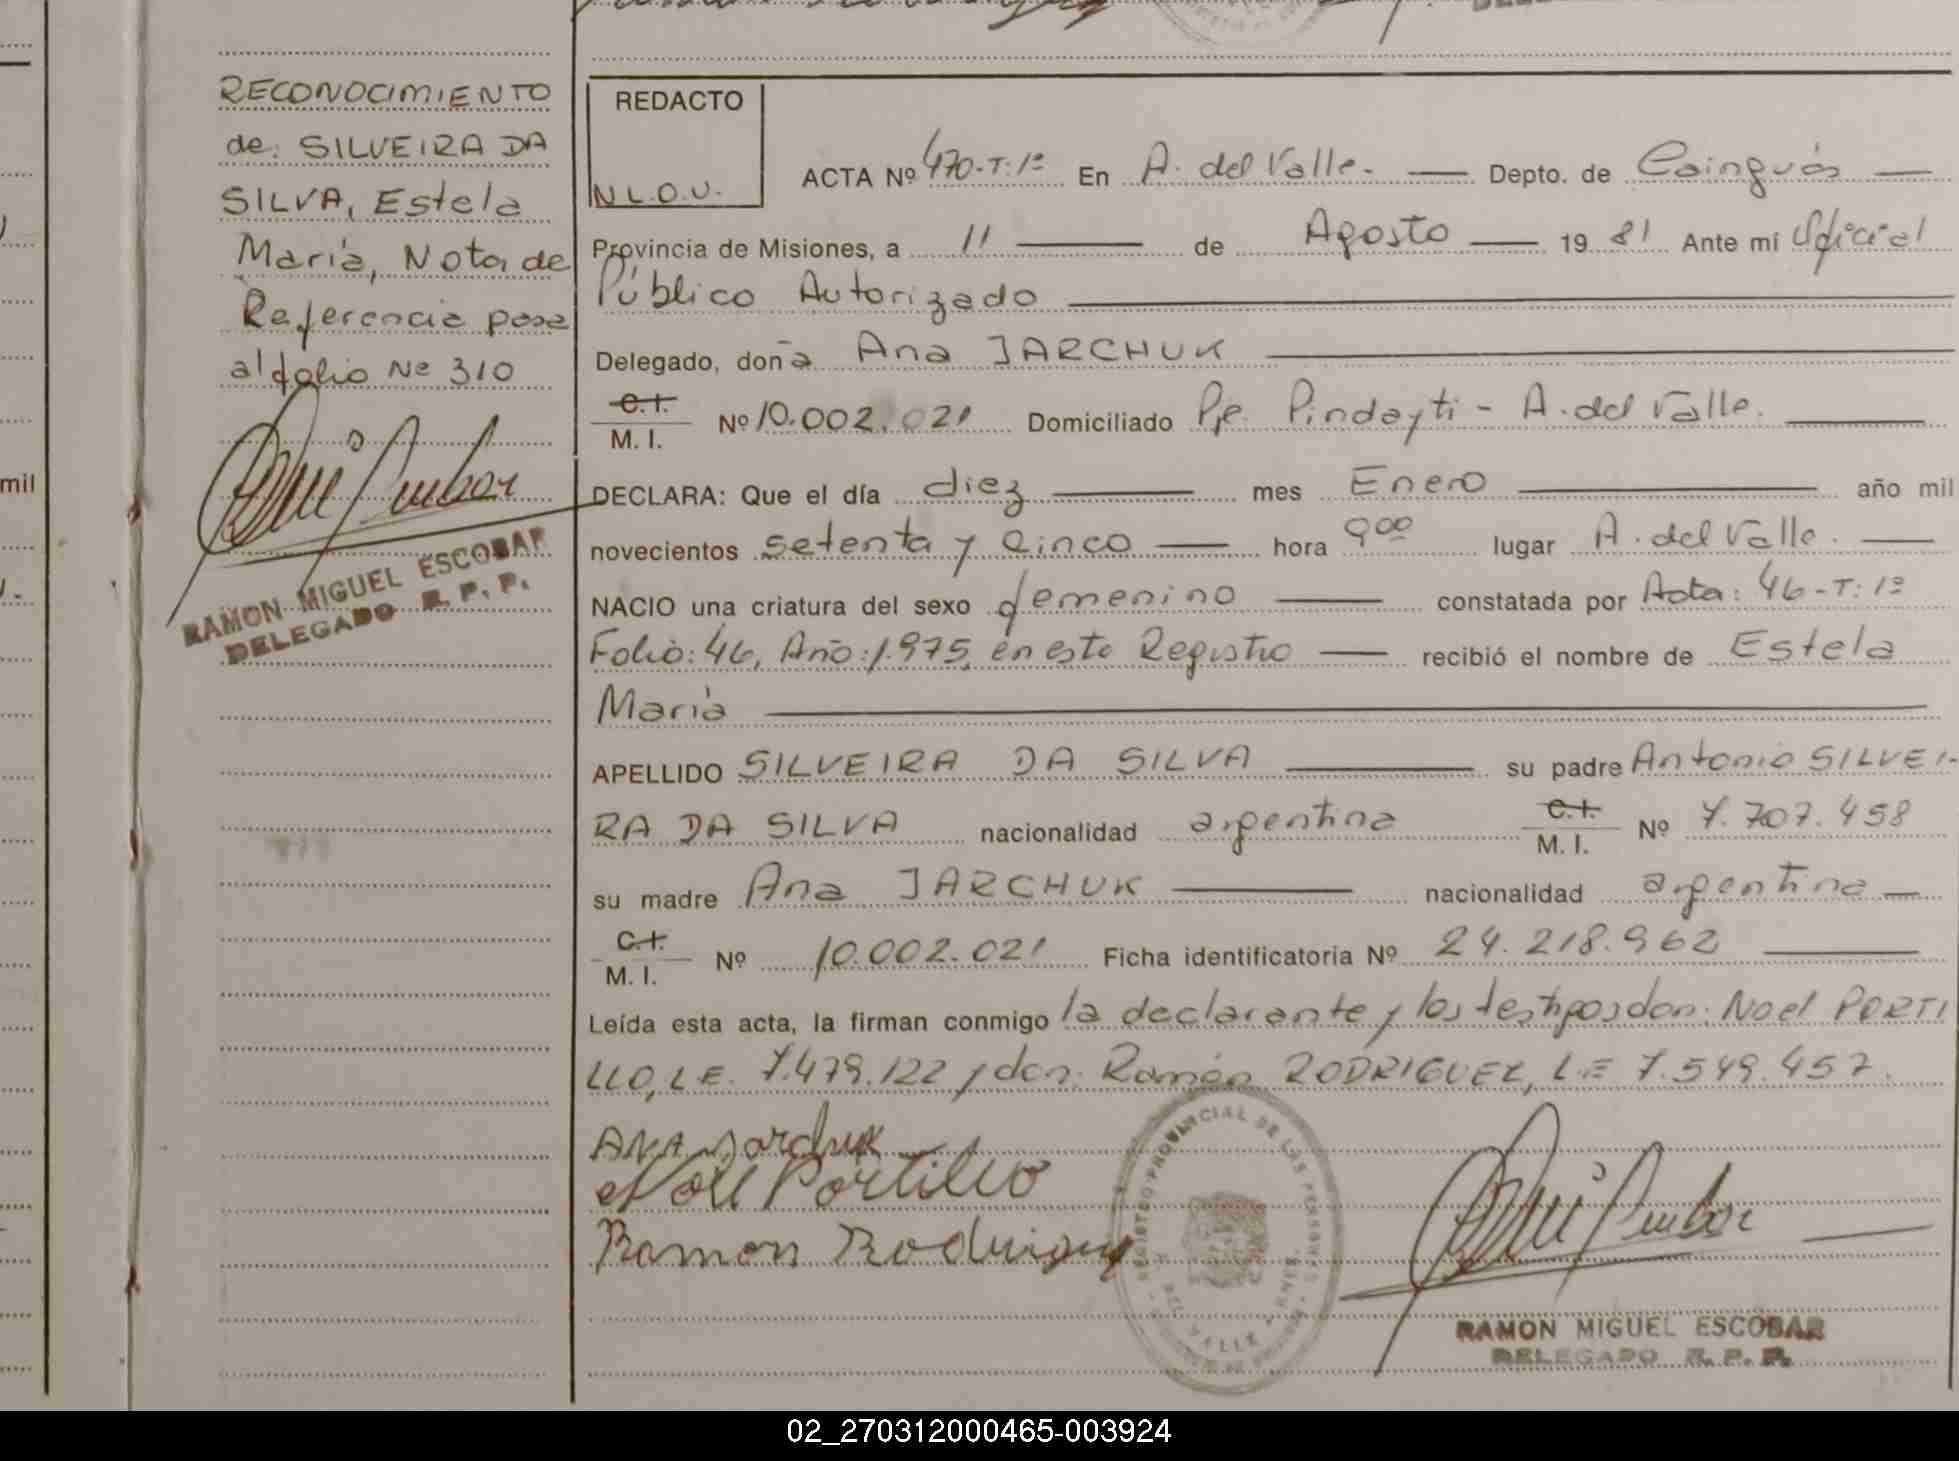 RECONOCIMIENTO
de: SILVEIRA DA
SILVA, Estela
María, Nota de
Referencia pasa
al folio Nº 310
RAMON MIGUEL ESCOBAR
DELEGADO R. P. P.
mil
REDACTO
N.L.O.V.
ACTA Nº 470-T:1º En A. del Valle. Depto. de Cainguás
Provincia de Misiones, a 11 de Agosto 1981 Ante mí Oficial
Público Autorizado
Delegado, doña Ana JARCHUK
C.I.
M. I. Nº 10.002.021 Domiciliado Pje. Pindayti - A. del Valle.
DECLARA: Que el día diez mes Enero año mil
novecientos setenta y cinco hora 9 00 lugar A. del Valle.
NACIO una criatura del sexo femenino constatada por Acta: 46-T:1º
Folio: 46, Año: 1.975, en este Registro recibió el nombre de Estela
María
APELLIDO SILVEIRA DA SILVA su padre Antonio SILVEI-
RA DA SILVA nacionalidad argentina C.I.
M. I. Nº 7.707.458
su madre Ana JARCHUK nacionalidad argentina
C.I.
M. I. Nº 10.002.021 Ficha identificatoria Nº 24.218.962
Leída esta acta, la firman conmigo la declarante y los testigos don: Noel PORTI
LLO, L.E. 7.479.122 y don: Ramón RODRIGUEZ, L.E 7.549.457.
ANA Jarchuk
Noel Portillo
Ramon Rodriguez
REGISTRO PROVINCIAL DE LAS PERSONAS
DEL VALLE
RAMON MIGUEL ESCOBAR
DELEGADO R. P. P.
02_270312000465-003924